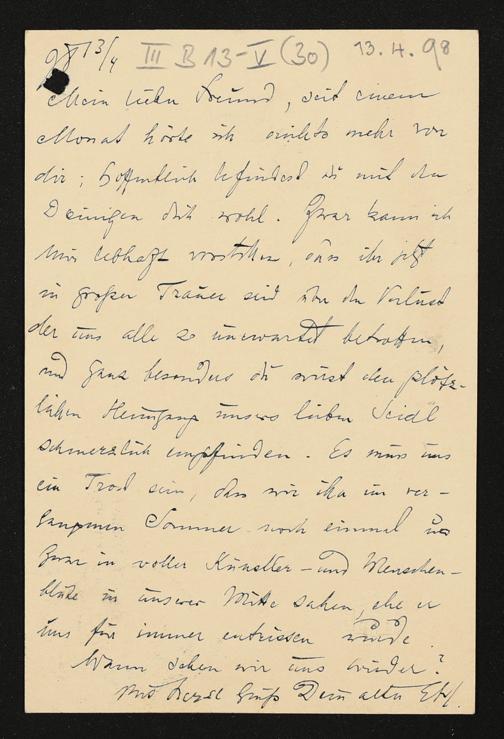 98 13/4 III B 13-V (30) 13.4.98
Mein lieber Freund, seit einem
Monat hörte ich nichts mehr von
dir; hoffentlich befindest du mit den
Deinigen dich wohl. Zwar kann ich
mir lebhaft vorstellen, dass ihr jetzt
in großer Trauer seid über den Verlust
der uns alle so unerwartet betroffen,
und ganz besonders du wirst den plötz-
lichen Heimgang unsers lieben Seidl
schmerzlich empfinden. Es muss uns
ein Trost sein, dass wir ihn im ver-
gangenen Sommer noch einmal u.
zwar in voller Künstler- und Menschen-
blüte in unserer Mitte sahen, ehe er
uns für immer entrissen wurde.
Wann sehen wir uns wieder?
Mit herzl Gruß Dein alter